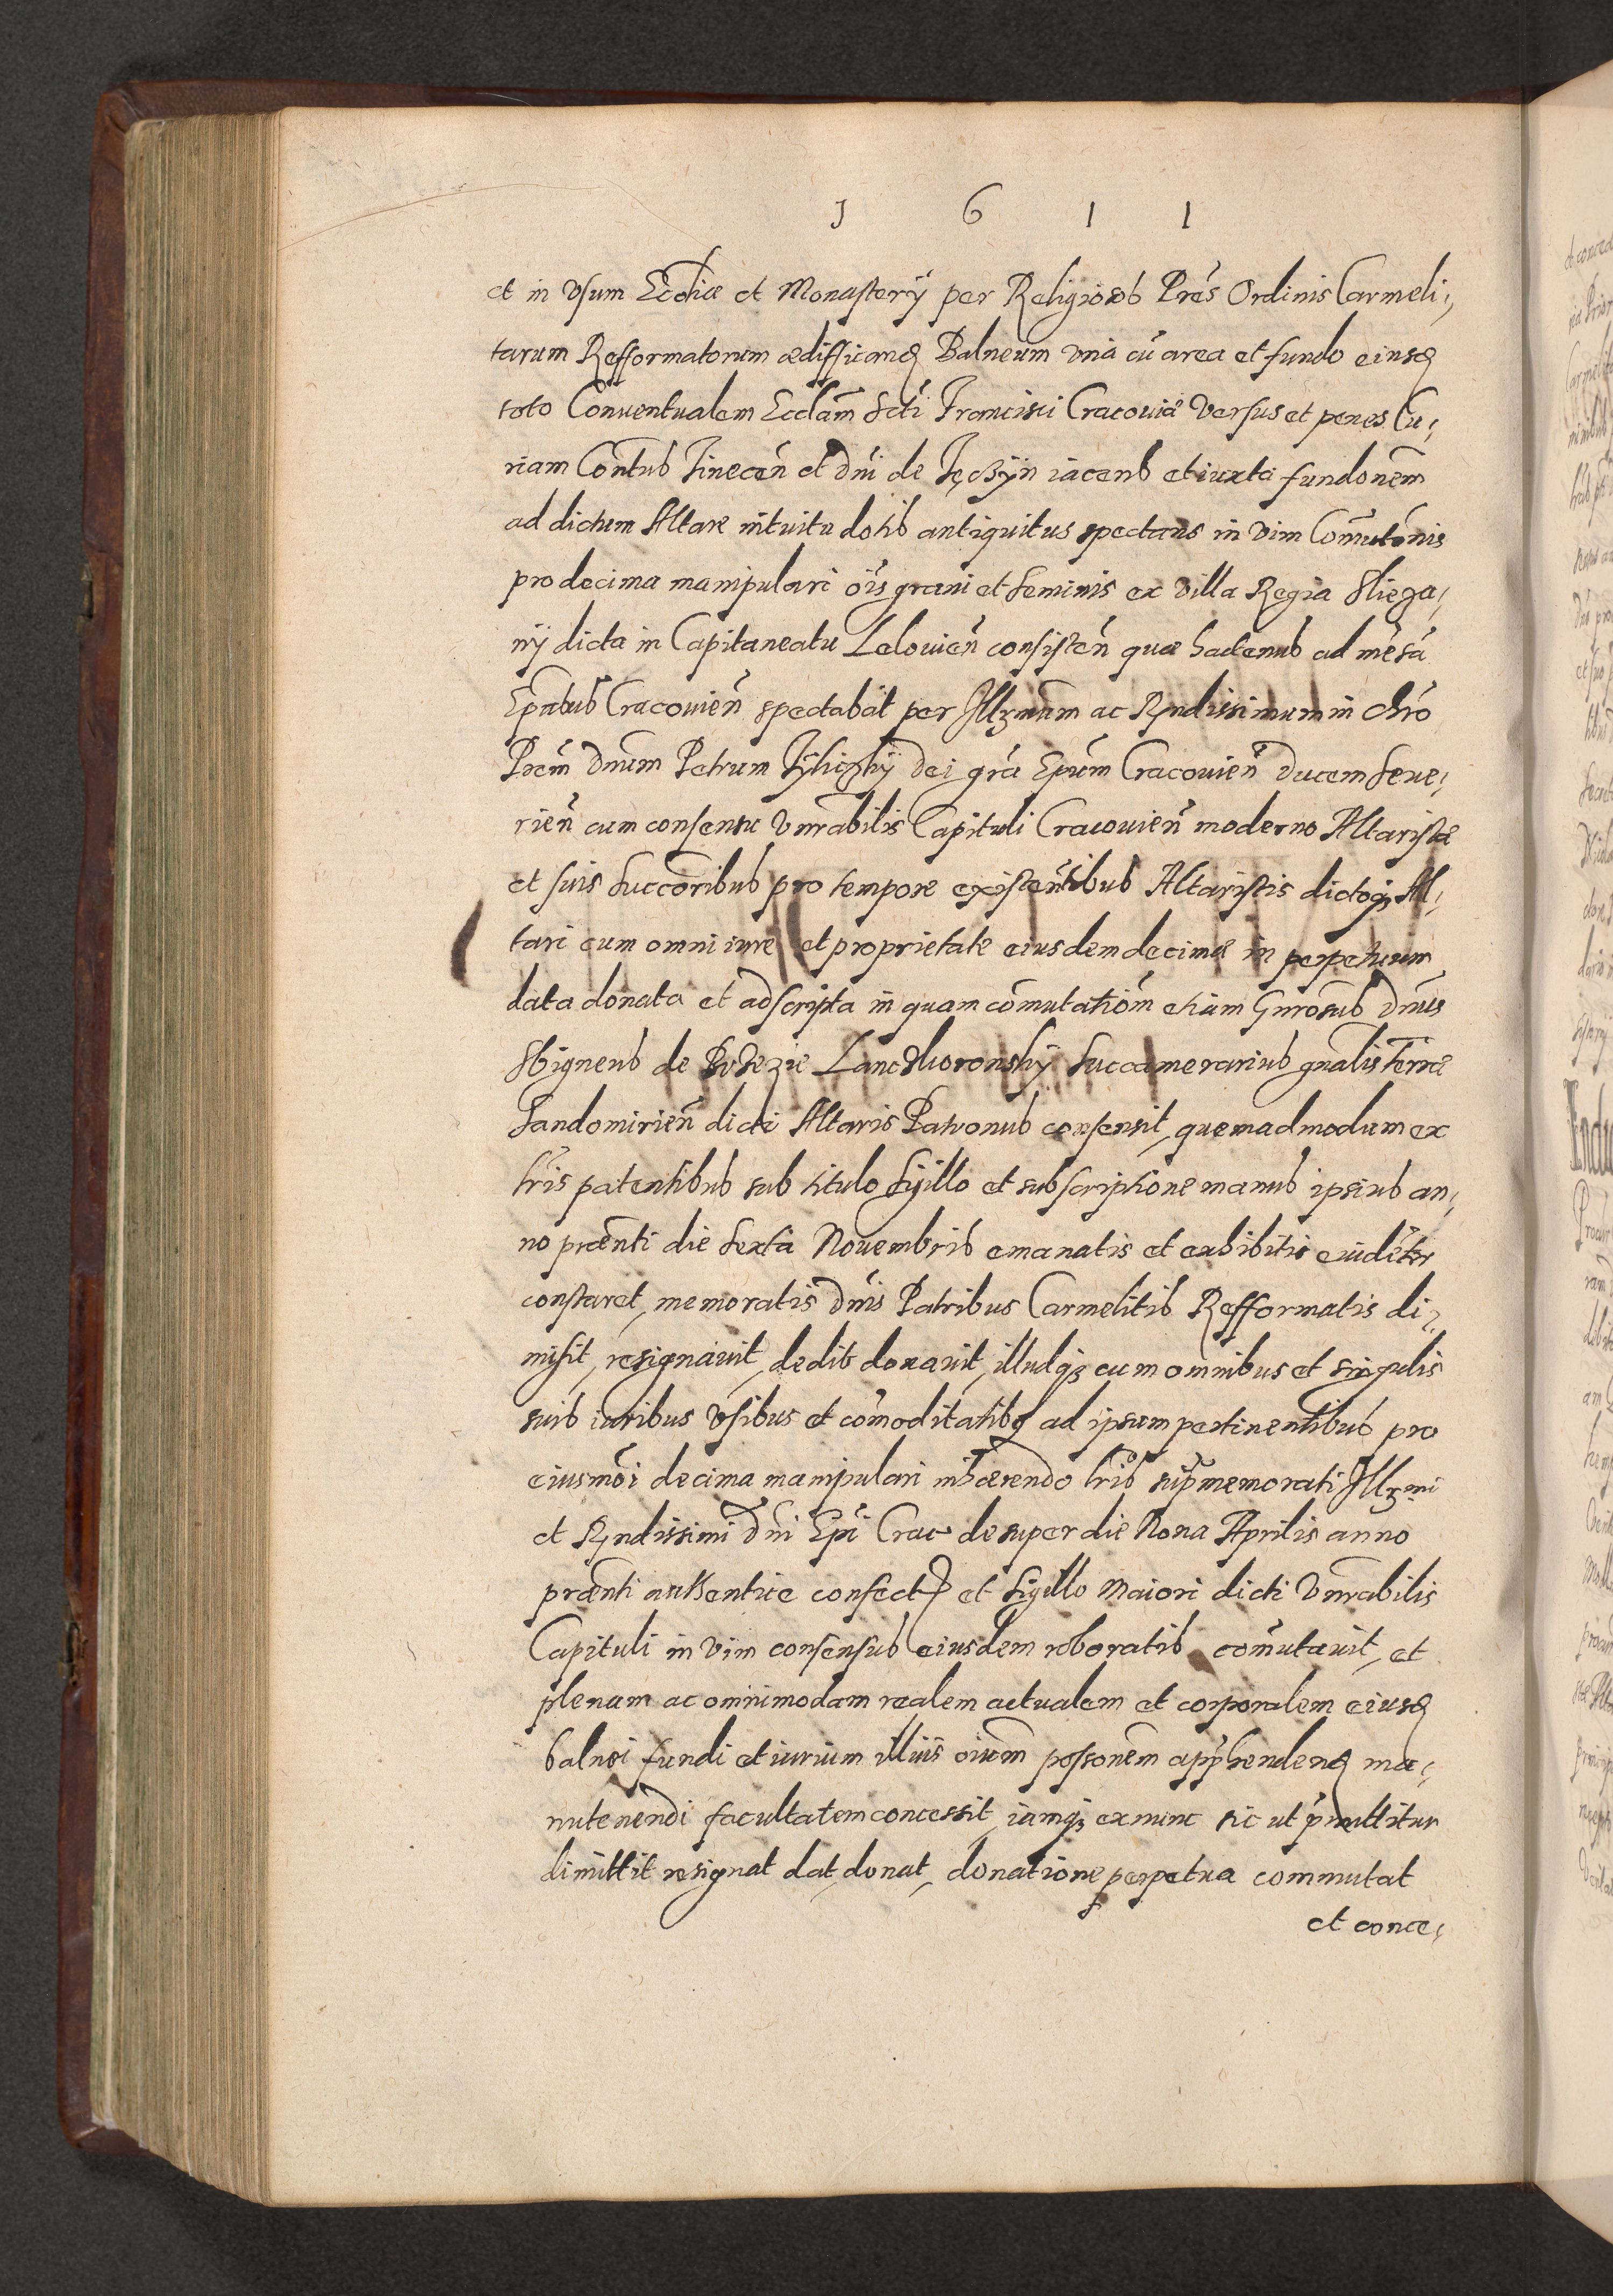 1 6 1 1
et in vsum Eccliæ et Monasterÿ per Religiosos Prēs Ordinis Carmeli,
tarum Refformatorum ædifficand Balneum vnà cū area et fundo eiusd
toto Conuentualem Eccłam̄ Scti Francisci Cracouiæ versus et penes Cu,
riam Contus Tinecen̄ et Dn̄i de Tęczÿn iacens et iuxta fundonem̄
ad dictum Altare intuitu dotis antiquitus spectans in vim Com̄utōnis
pro decima manipulari oīs grani et seminis ex villa Regia
nÿ dicta in Capitaneatu Lelouien̄ consisten̄ quæ hactenus ad mēsā
Ep̄atus Cracouien̄ spectabat per Illr̄mum ac Rn̄dissimum in Chrō
Prēm Dn̄um Petrum Tÿlickÿ Dei grā Ep̄um Cracouien̄ Ducem Seue,
rien̄ cum consensu Vn̄rabilis Capituli Cracouien̄ moderno Altaristæ
et suis succōribus pro tempore existentibus Altaristis dictoq3 Al,
tari cum omni iure et proprietate eiusdem decimæ in perpetuum
data donata et adscripta in quam com̄utatiōm etiam Gnrōsus Dn̄us
Sbigneus de Brzezie Lanczkoronskÿ Succamerarius gn̄alis Terræ
Sandomirien̄ dicti Altaris Patronus consensit, quemadmodum ex
lrīs patentibus sub titulo sigillo et subscriptione manus ipsius an,
no præn̄ti die sexta Nouembris emanatis et exhibitis euidēter
constaret, memoratis Dn̄is Patribus Carmelitis Refformatis di,
misit, resignauit, dedit donauit, illudq3 cum omnibus et singulis
suis iuribus vsibus et com̄oditatibq ad ipsum pertinentibus pro
eiusmōi decima manipulari inhærendo lrīs supr̄memorati Illr̄mi
et Rn̄dissimi Dn̄i Ep̄i Crac desuper die Nona Aprilis anno
præn̄ti authentice confect et sigillo maiori dicti Vn̄rabilis
Capituli in vim consensus eiusdem roboratis com̄utauit, et
plenam ac omnimodam realem actualem et corporalem eiusd
balnei fundi et iurium illius oīum possonem̄ appr̄hendend ma,
nutenendi facultatem concessit, iamq3 exnunc sic ut p̄mittitur
dimittit resignat dat, donat, donatione perpetua commutat
et conce,